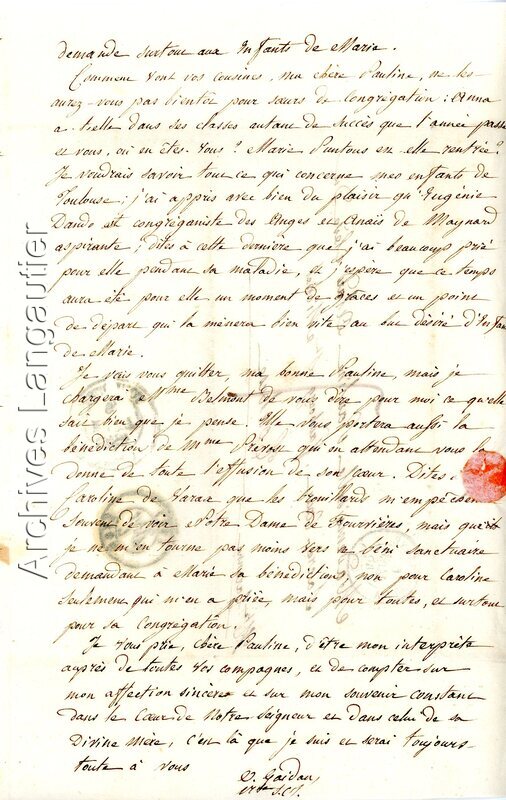 demande surtout aux Enfants de Marie.
Comment vont vos cousines, ma chère Pauline, ne les
aurez-vous pas bientôt pour sœurs de Congrégation ; Anna
a-t-elle dans ses classes autant de succès que l'année passée
et vous, où en êtes-vous ? Marie est elle rentrée ?
Je voudrais savoir tout ce qui concerne mes enfants de
Toulouse ; j'ai appris avec bien du plaisir qu'Eugénie
Dando est congréganiste des Anges et Anaïs de Maynard
aspirante ; dites à cette dernière que j'ai beaucoup prié
pour elle pendant sa maladie, et j'espère que ce temps
aura été pour elle un moment de grâces et un point
de départ qui la mènera bien vite au but désiré d'Enfant
de Marie.
Je vais vous quitter, ma bonne Pauline, mais je
chargerai Mme Belmont de vous dire pour moi ce qu'elle
sait bien que je pense. Elle vous portera aussi la
bénédiction de Mme Prévost qui en attendant vous la
donne de toute l'effusion de son cœur. Dites à
Caroline de que les brouillards m'empêchent
souvent de voir Notre Dame de Fourvières, mais que
je ne m'en tourne pas moins vers ce béni sanctuaire
demandant à Marie sa bénédiction, non pour Caroline
seulement qui m'en a priée, mais pour toutes, et surtout
pour sa Congrégation.
Je vous prie, chère Pauline, d'être mon interprète
auprès de toutes vos compagnes, et de compter sur
mon affection sincère et sur mon souvenir constant
dans le Cœur de Notre Seigneur et dans celui de sa
Divine Mère, c'est là que je suis et serai toujours
toute à vous
Archives Langautier